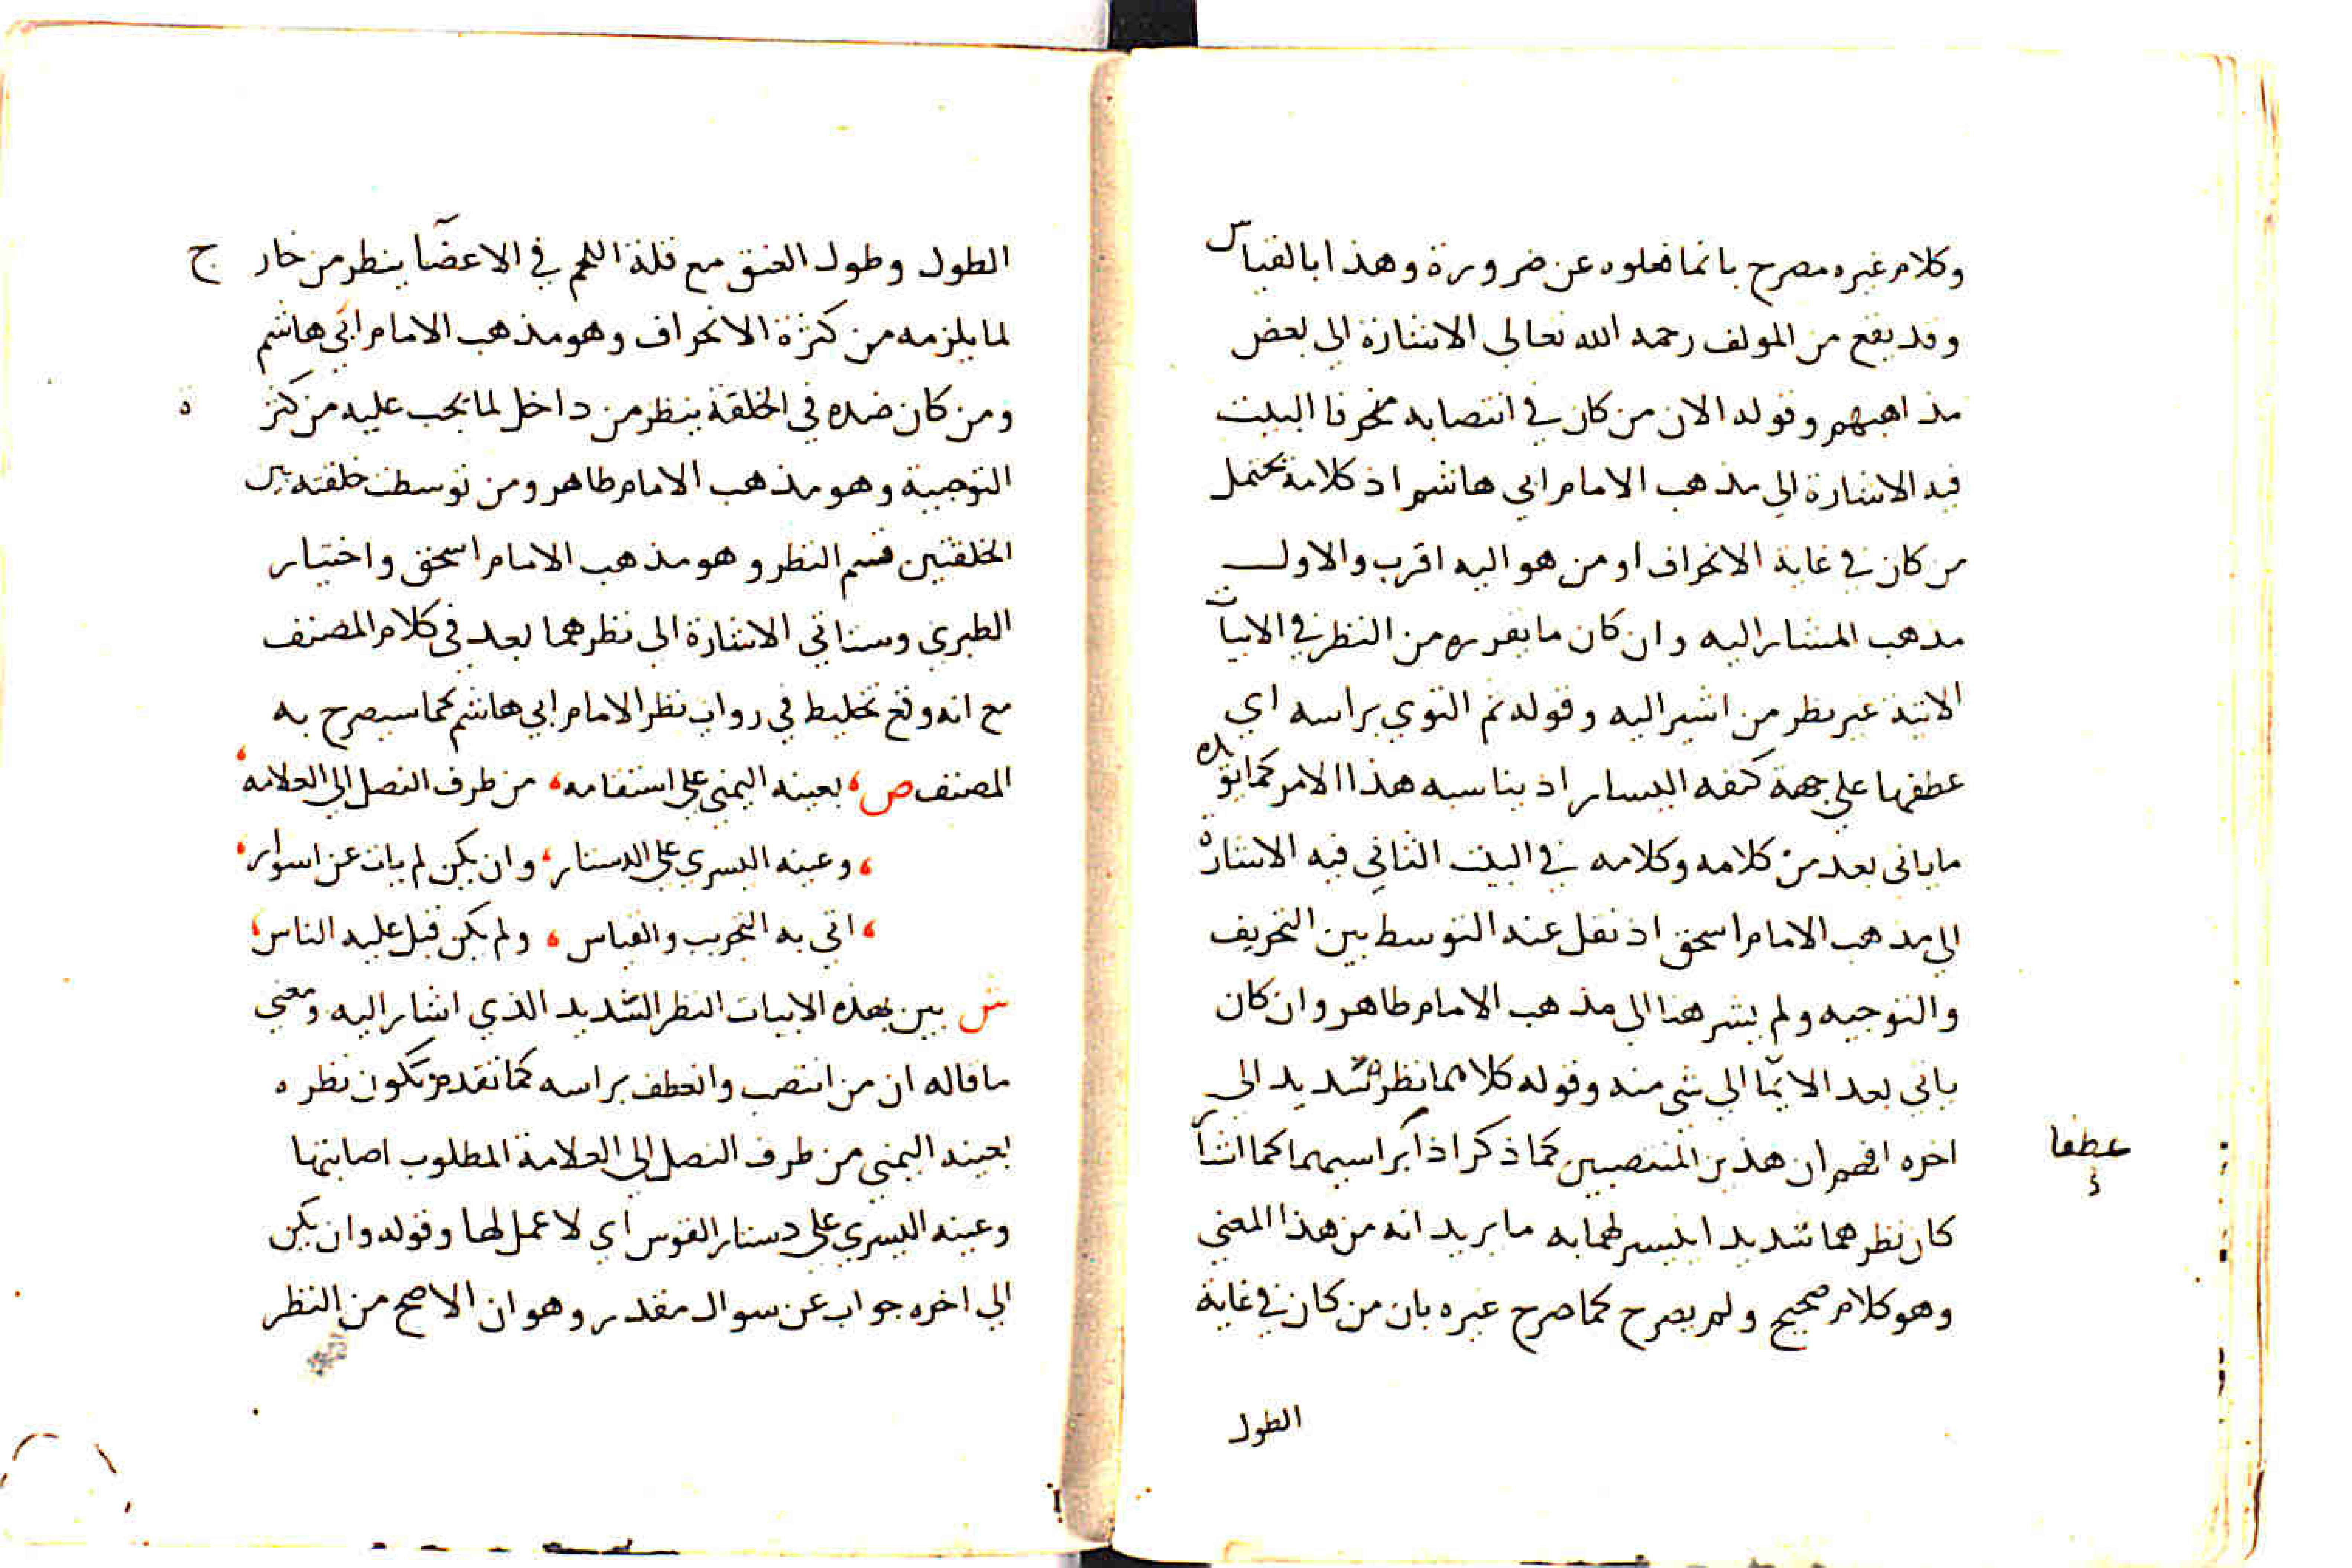 وكلام غيره مصرح بانما فعلوه عن ضرورة وهذا بالقياس
وقد يقع من المولف رحمه الله تعالى الاشارة الى بعض
مذاهبهم وقوله الان من كان في انتصابه منحرفا البيت
فيه الاشارة الى مذهب الامام ابي هاشم اذ كلامه يحتمل
من كان في غاية الانحراف او من هو اليه اقرب والاول
مذهب المشار اليه وان كان ما يقرره من النظر في الابيات
الاتية غير نظر من اشير اليه وقوله ثم التوي براسه اي
عطفها على جهة كتفه اليسار اذ يناسبه هذا الامر كما
ما ياتى بعد من كلامه وكلامه في البيت الثاني فيه الاشارة
الى مذهب الامام اسحق اذ نقل عنه التوسط بين التحريف
والتوجيه ولم يشر هنا الى مذهب الامام طاهر وان كان
ياتي بعد الايما الى شي منه وقوله كلاهما نظره شديد الى
اخره افهم ان هذين المنتصبين كما ذكر اذا براسيهما كما اشا
عطفا
كان نظرهما شديدا ليسر لهما به ما يريدانه من هذا المعنى
وهو كلام صحيح ولم يصرح كما صرح غيره بان من كان في غاية
الطول
الطول وطول العنق مع قلة اللحم في الاعضا ينظر من خارج
لما يلزمه من كثرة الانحراف وهو مذهب الامام ابي هاشم
ومن كان ضده في الخلقة ينظر من داخل لما يجب عليه من كثرة
التوجيه وهو مذهب الامام طاهر ومن توسطت خلقته بين
الخلقتين قسم النظر وهو مذهب الامام اسحق واختيار
الطبري وستاتي الاشارة الى نظرهما بعد في كلام المصنف
مع انه وقع تخليط في رواية نظر الامام ابي هاشم كما سيصرح به
المصنف ص، بعينه اليمنى على استقامه، من طرف النصل الى العلامه،
، وعينه اليسرى على الدستار، وان يكن لم يات عن اسوار،
، اتى به التجريب والقياس، ولم يكن قبل عليه الناس،
ش بين بهذه الابيات النظر الشديد الذي اشار اليه ومعنى
ما قاله ان من انتصب وانعطف براسه كما تقدم يكون نظره
بعينه اليمنى من طرف النصل الى العلامة المطلوب اصابتها
وعينه اليسرى على دستار القوس اي لا عمل لها وقوله وان يكن
الى اخره جواب عن سوال مقدر وهو ان الاصح من النظر